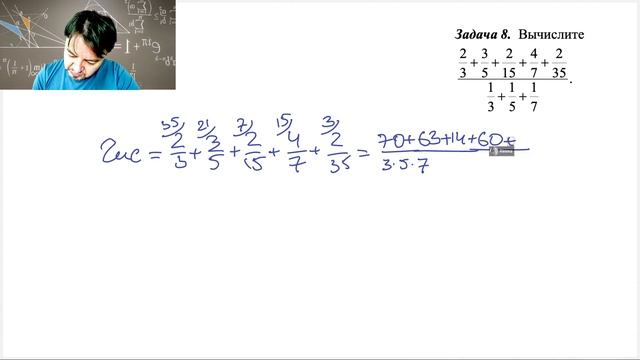 Задача 8. Вычислите
2/3 + 3/5 + 2/15 + 4/7 + 2/35
1/3 + 1/5 + 1/7 .
35/ 21/ 7/ 15/ 3/
Чис = 2/3 + 3/5 + 2/15 + 4/7 + 2/35 = 70+63+14+60+
3·5·7